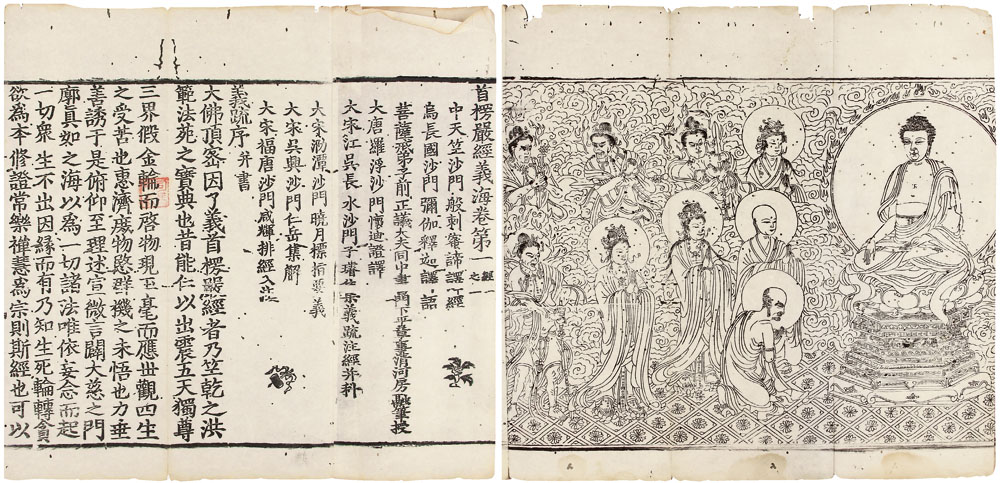 首楞嚴經義海卷第一 經之一
中天竺沙門 般剌蜜諦 譯經
烏長國沙門 彌伽釋迦 譯語
菩薩戒弟子前正議大夫同中書門下平章事清河房融筆授
大唐羅浮沙門懷迪證譯
大宋江吳長水沙門子璿集義疏注經并科
大宋泐潭沙門曉月標指要義
大宋吳興沙門仁岳集解
大宋福唐沙門咸輝排經入疏
義疏序并書
大佛頂密因了義首楞嚴經者乃竺乾之洪
範法苑之寶典也昔能仁以出震五天獨尊
三界假金輪而啓物現玉毫而應世觀四生
之受苦也惠濟庶物愍群機之未悟也力垂
善誘于是俯仰至理述宣微言闢大慈之門
廓真如之海以為一切諸法唯依妄念而起
一切衆生不出因緣而有乃知生死輪轉貪
欲為本修證常樂禪慧為宗則斯經也可以